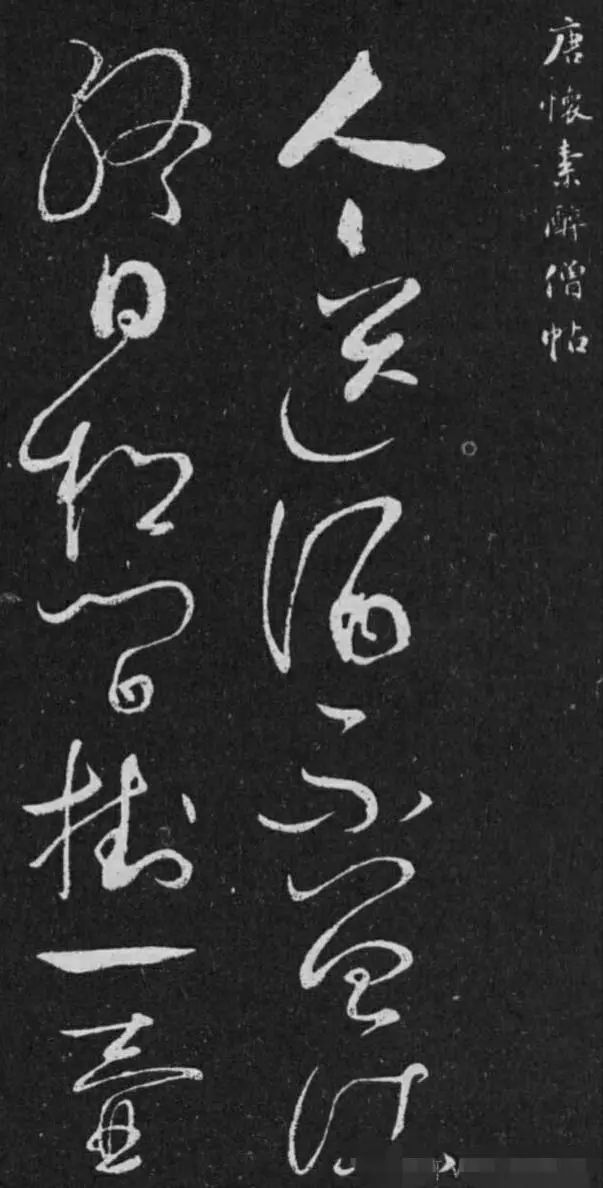 唐懷素醉僧帖
人〻送酒不曾沽
終日松間掛一壺